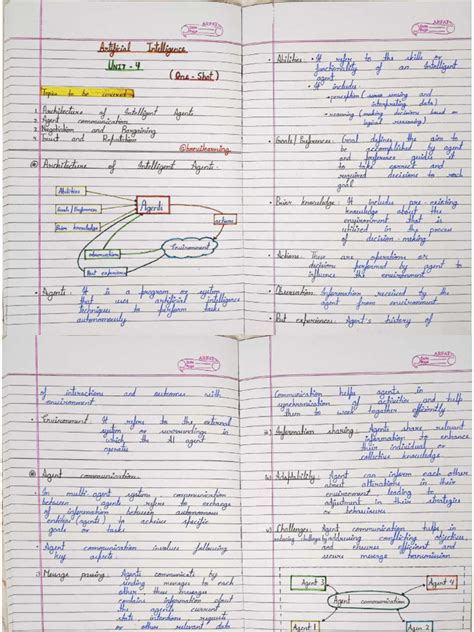 Artificial Intelligence
UNIT - 4
(One - Shot)
Topics to be covered
1. Architecture of Intelligent Agents
2. Agent communication
3. Negotiation and Bargaining
4. Trust and Reputation
Architecture of Intelligent Agents -
Abilities
Goals/Preferences
Prior knowledge
Agents
actions
Environment
observations
Past experience
• Agents : It is a program or system
that uses artificial intelligence
techniques to perform tasks
autonomously
• Abilities - • It refer to the skills or
functionality of an Intelligent
agent
• It includes -
• perception (
interpreting data)
• reasoning (making decisions based on
logical reasoning)
• Goals/Preferences: Goal defines the aim to
be accomplished by agent
and preferences guides it
to take correct and
required decisions to reach
goal
• Prior knowledge: It includes pre-existing
knowledge about the
environment that is
utilized in the process
of decision-making
• Actions: These are operations or
decisions performed by agent to
influence the environment
• Observation: Information received by the
agent from environment
• Past experience: Agent's history of
of interactions and outcomes with
environment
• Environment: It refers to the external
system or surroundings in
which the AI agent
operate
Agent communication:
• In multi-agent system communication
between agents refers to exchange
of information between autonomous
entities (agents) to achieve specific
goals or tasks
• Agent communication involves following
key aspects:
i) Message passing: Agents communicate by
sending messages to each
other these messages
contains information about
the agents current
state intentions requests
or other relevant data
Communication helps agents in
synchronization of activities and help
them to work together efficiently
Information sharing: Agents share relevant
information to enhance
their individual or
collective knowledge
Adaptability: Agent can inform each other
about alterations in their
environment leading to
adjustment in their strategies
or behaviours
v) Challenges: Agent communication helps in
reducing challenges by addressing conflicting objectives,
and ensures efficient and
secure message transmission
Agent 3
Agent 4
Agent communication
Agent 1
Agent 2